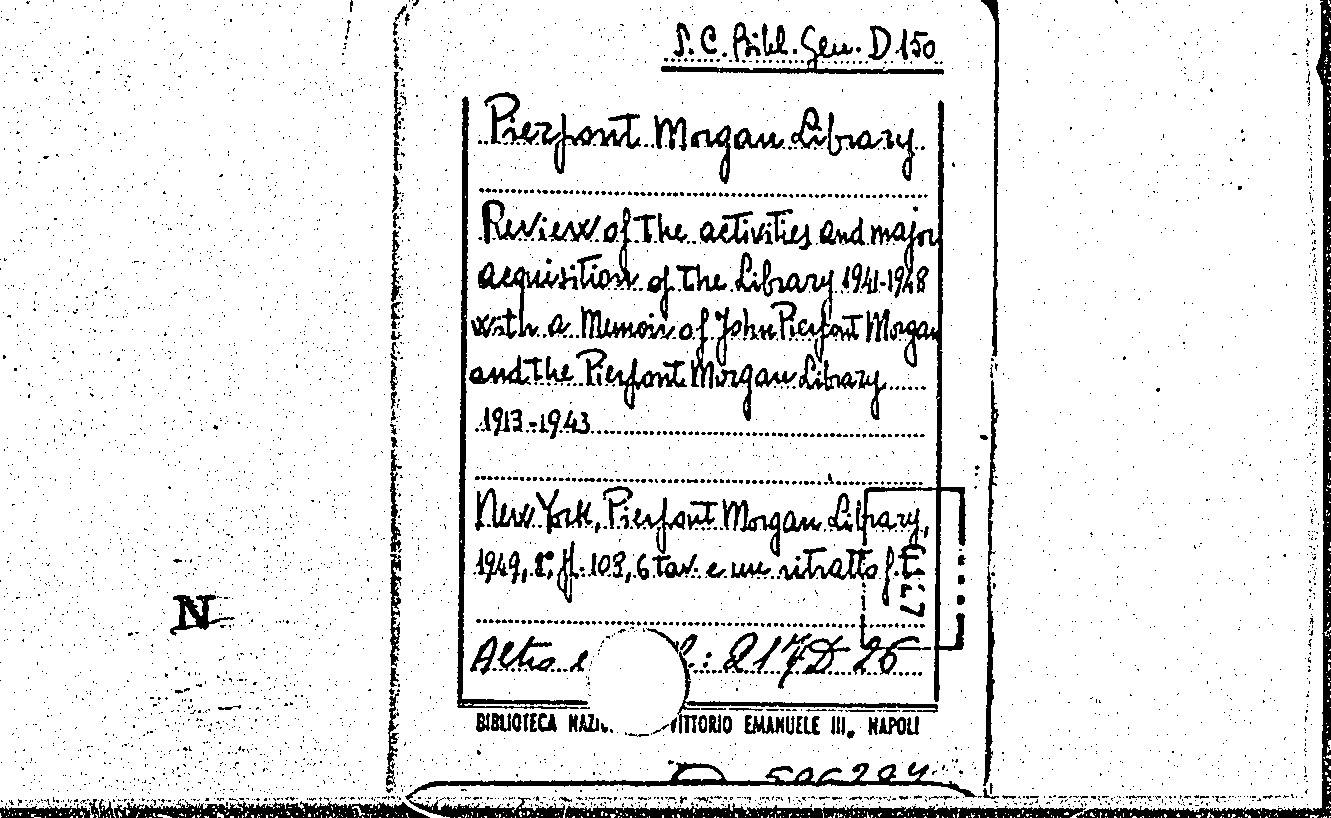 S.C. Bibl. Gen. D 150
Pierpont Morgan Library
Review of the activities and major
acquisition of the Library 1941-1948
with a Memoir of John Pierpont Morgan
and the Pierpont Morgan Library
1913-1943
New York, Pierpont Morgan Library,
1949, 8°, ff. 103, 6 tav. e un ritratto f.t.
Altro e l.: 217 D 26
BIBLIOTECA VITTORIO EMANUELE III. NAPOLI
N